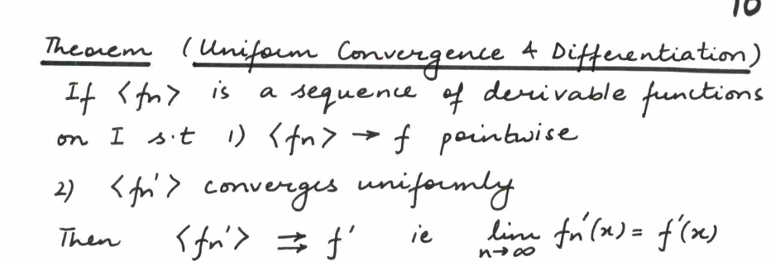 10
Theorem (Uniform Convergence & Differentiation)
If <fn> is a sequence of derivable functions
on I s.t 1) <fn> → f pointwise
2) <fn'> converges uniformly
Then <fn'> ⇉ f' ie lim n→∞ fn'(x) = f'(x)